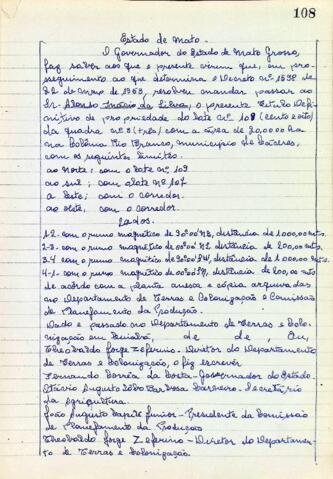 108
Estado de Mato -
O Governador do Estado de Mato Grosso,
faz saber aos que o presente virem que, em pro-
seguimento ao que determina o Decreto nº 1538 de
22 de março de 1953, resolveu mandar passar ao
Sr. Alonso Inácio da Silva, o presente Titulo Defi-
nitivo de propriedade do lote nº 108 (cento e oito)
da quadra nº 3 (três) com a área de 20,0000 ha
na Colônia Rio Branco, município de Cáceres,
com os seguintes limites:
ao norte: com o lote nº 109
ao sul; com o lote nº 107
a leste; com o corredor.
ao oeste, com o corredor.
Lados.
1-2- com o rumo magnético de 90º00' distância de 1000,00 mts.
2-3- com o rumo magnético de 00º00' distância de 200,00 mts.
3-4 com o rumo magnético de 90º00' distância de 1.000,00 mts.
4-1- com o rumo magnético de 00º00' distância de 200,00 mts
de acôrdo com a planta anexa e cópia arquivadas
no Departamento de Terras e Colonização e Comissão
de Planejamento da Produção.
Dado e passado no Departamento de Terras e Colo-
nização em Cuiabá, de de, Eu,
Theobaldo Jorge Zeferino - Diretor do Departamento
de Terras e Colonização, o fiz escrever.
Fernando Corrêa da Costa - Governador do Estado.
Otávio Augusto Barbosa - Secretário
da Agricultura.
João Augusto Júnior - Presidente da Comissão
de Planejamento da Produção
Theobaldo Jorge Zeferino - Diretor do Departamen-
to de Terras e Colonização.